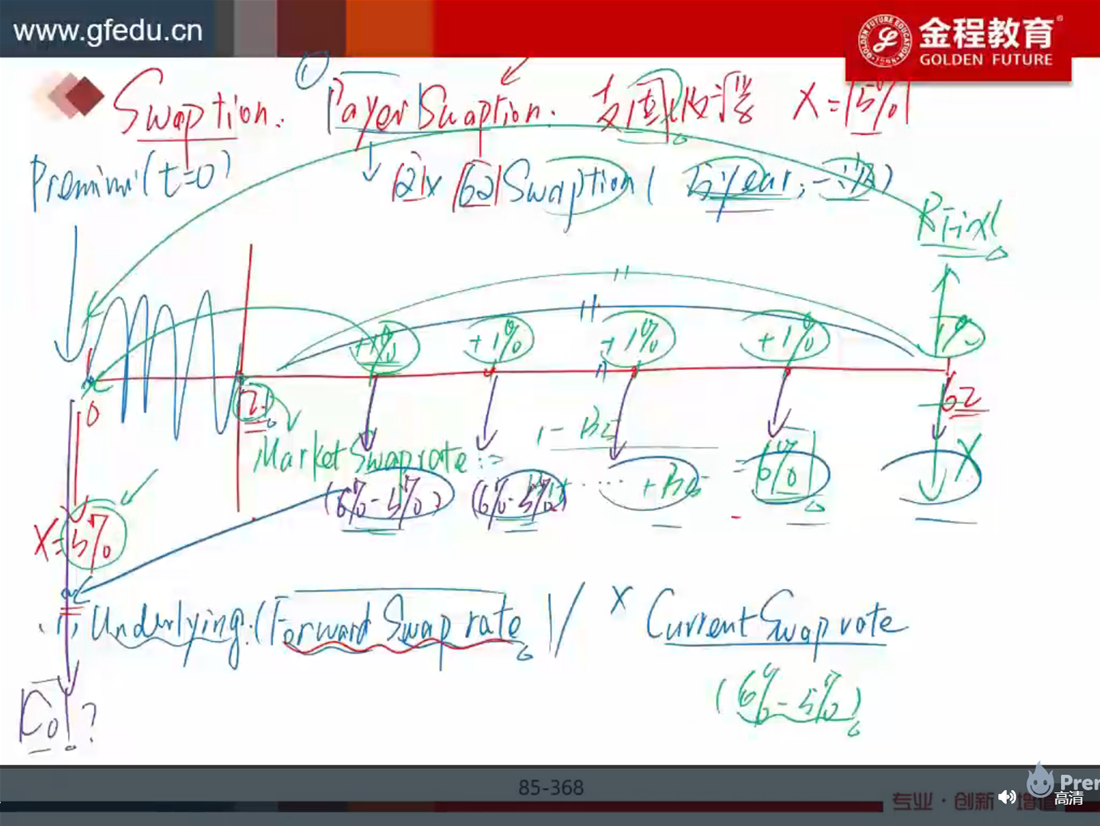 www.gfedu.cn
金程教育
GOLDEN FUTURE
① Payer Swaption. 支固收浮 X=5%
Swaption:
Premimi(t=0) 12 x 62 Swaption (5 year,
RFix
+1% +1% +1% +1% 1%
0 12 62
1-B5
Market Swap rate: = 6% X
(6%-5%) (6%-5%) ... +B5
X=5%
(1) Underlying: (Forward Swap rate) / x Current Swap rate
(6%-5%)
C0 ?
85-368
专业·创新·增值
Prem
高清